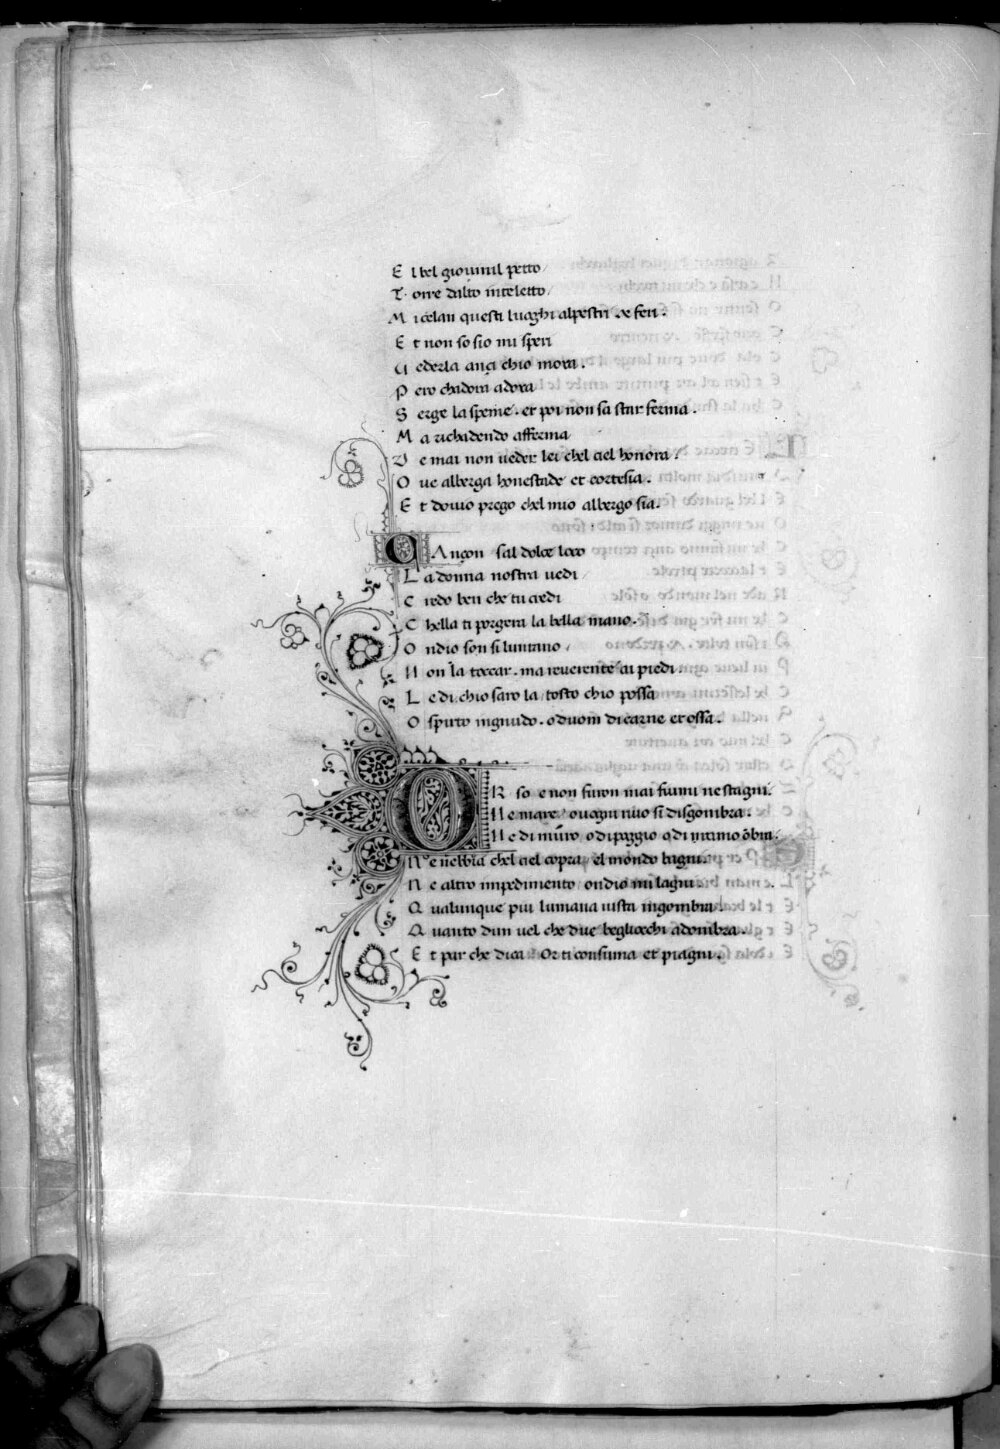 E l bel giouinil petto
T orre dalto intelletto
M i celan questi luoghi alpestri . et feri .
E t non so sio mi speri
V ederla anci chio mora .
P ero chadora adora
S erge la speme . et poi non sa star ferma .
M a richadendo afferma
D e mai non ueder lei chel ciel honora .
O ue alberga honestade et cortesia .
E t douio prego chel mio albergo sia .
C Ançon sal dolce loco
L a donna nostra uedi
C redo ben che tu credi
C hella ti porgera la bella mano .
O ndio son si luntano
N on la toccar . ma reuerente ai piedi .
L e di chio saro la tosto chio possa
O spirto ingnudo . o duom di carne et ossa .
O R so e non furon mai fiumi ne stagni .
N e mare ouogni riuo si disgombra .
N e di muro o di poggio o di ramo ōbra .
N e nebbia chel ciel copra el mondo bagni .
N e altro impedimento ondio mi lagni .
Q ualunque piu lumana uista ingombra
Q uanto dun uel che due begliocchi adombra .
E t par che dica Or ti consuma et piagni .